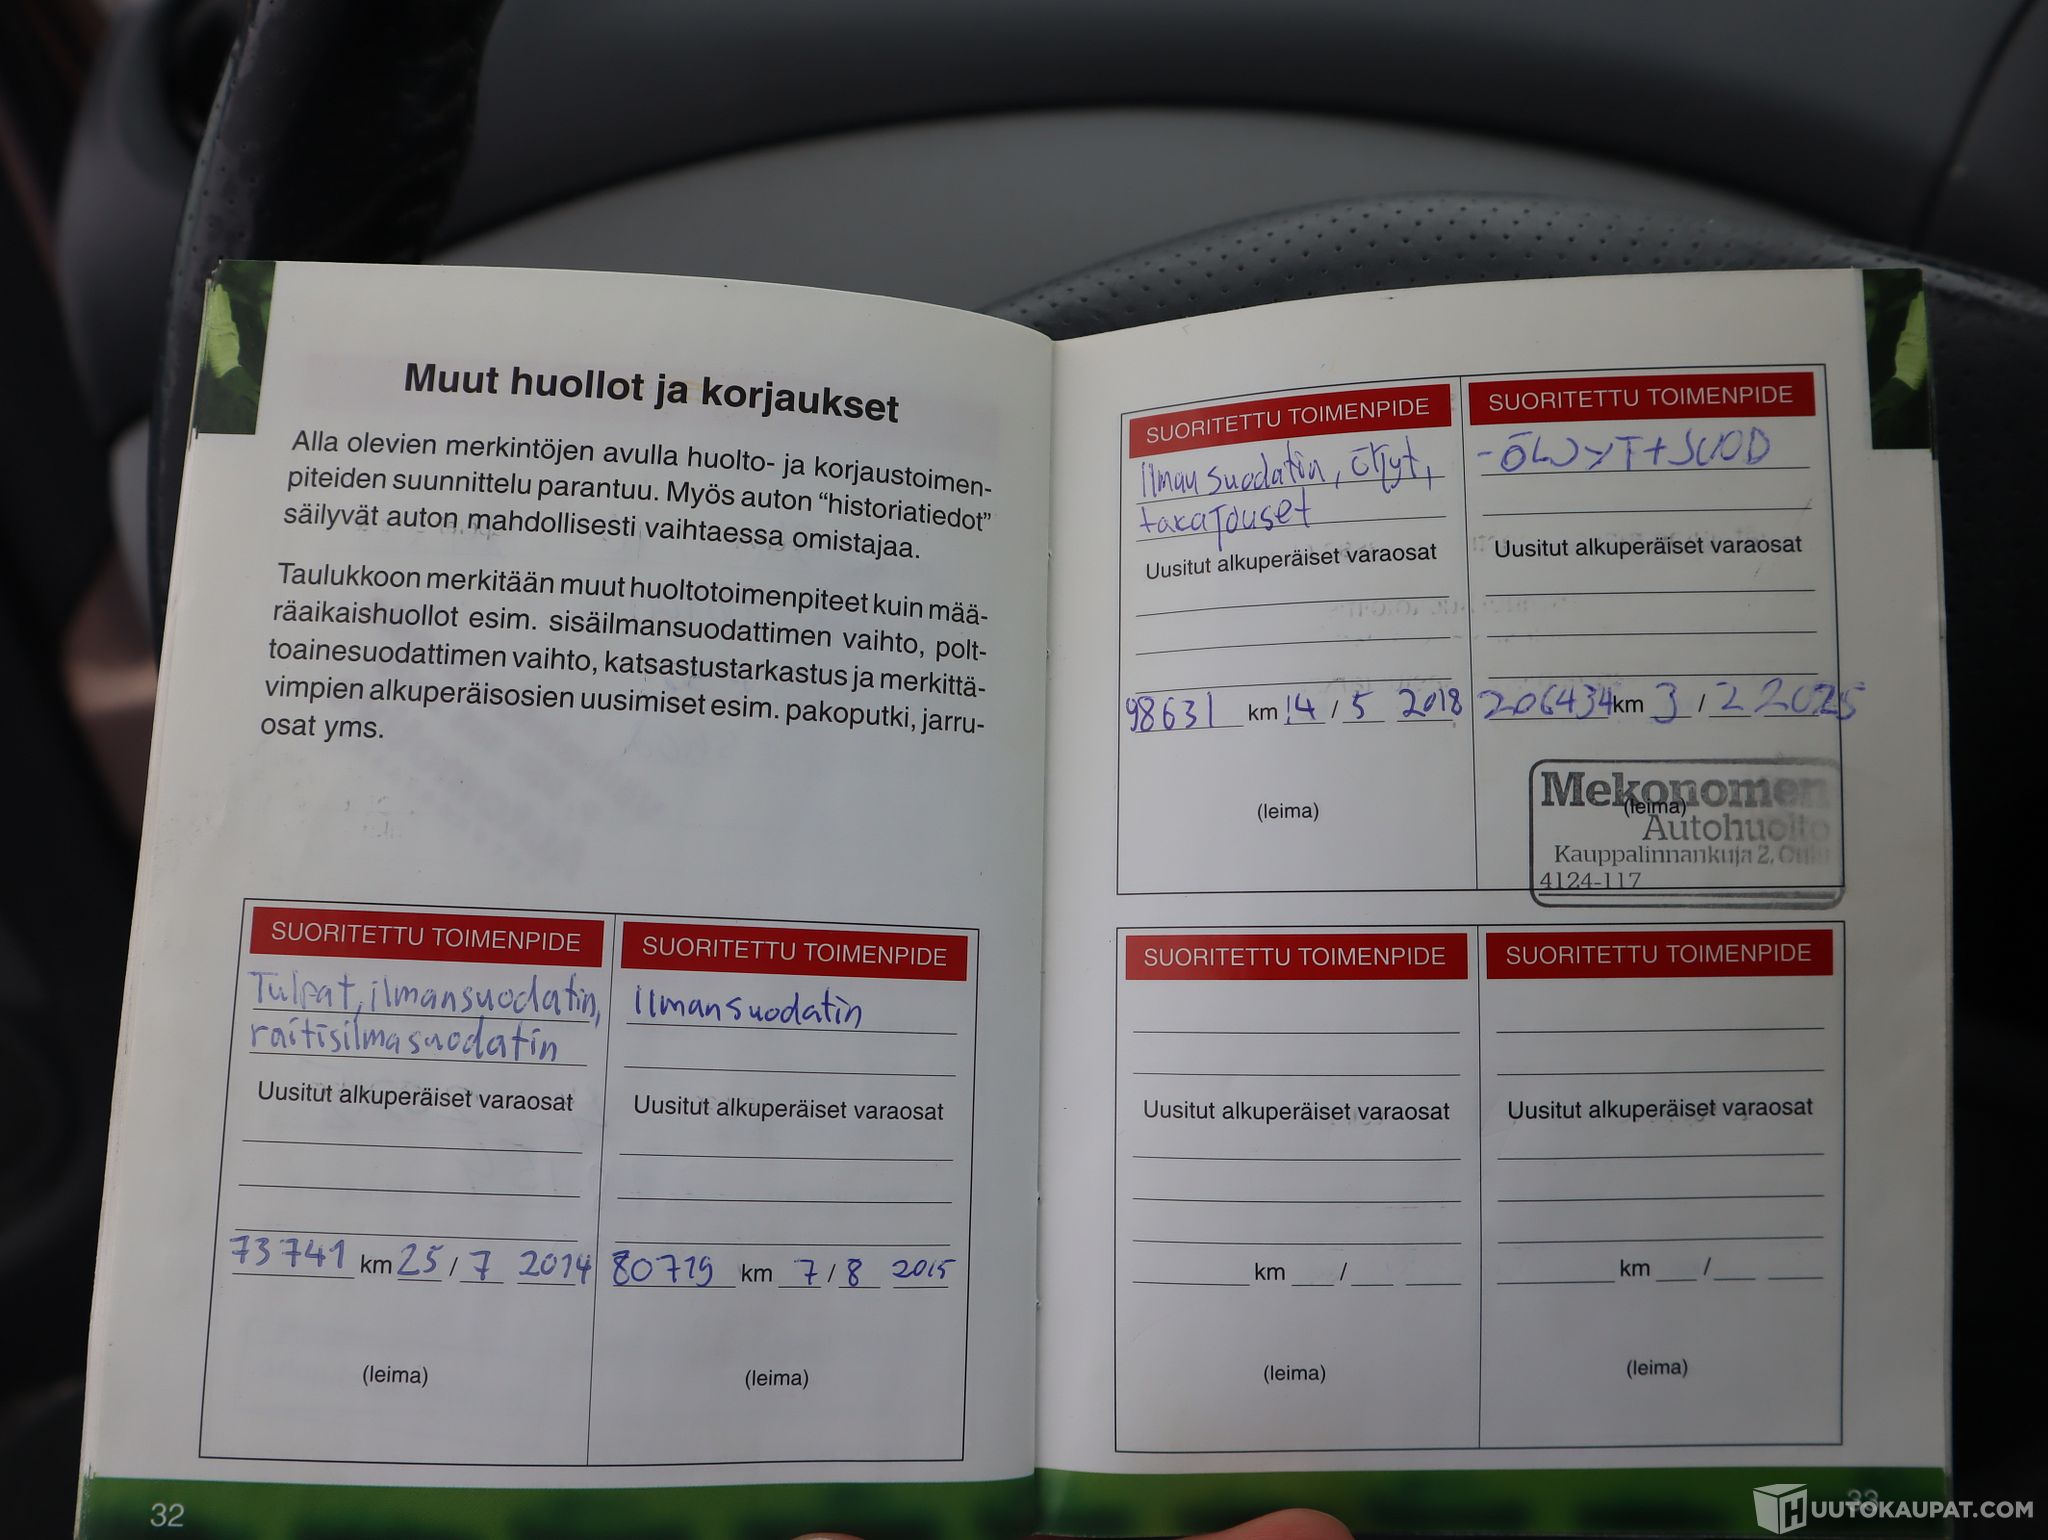 Muut huollot ja korjaukset
Alla olevien merkintöjen avulla huolto- ja korjaustoimen-
piteiden suunnittelu parantuu. Myös auton “historiatiedot”
säilyvät auton mahdollisesti vaihtaessa omistajaa.
Taulukkoon merkitään muut huoltotoimenpiteet kuin mää-
räaikaishuollot esim. sisäilmansuodattimen vaihto, polt-
toainesuodattimen vaihto, katsastustarkastus ja merkittä-
vimpien alkuperäisosien uusimiset esim. pakoputki, jarru-
osat yms.
SUORITETTU TOIMENPIDE
Tulpat, ilmansuodatin,
raitisilmasuodatin
Uusitut alkuperäiset varaosat
73741 km 25 / 7 2014
(leima)
SUORITETTU TOIMENPIDE
Ilmansuodatin
Uusitut alkuperäiset varaosat
80719 km 7 / 8 2015
(leima)
32
SUORITETTU TOIMENPIDE
Ilmansuodatin, öljyt,
takajouset
Uusitut alkuperäiset varaosat
98631 km 14 / 5 2018
(leima)
SUORITETTU TOIMENPIDE
-ÖLJYT+SUOD
Uusitut alkuperäiset varaosat
206434 km 3 / 2 2025
(leima)
Mekonomen
Autohuolto
Kauppalinnankuja 2,
4124-117
SUORITETTU TOIMENPIDE
Uusitut alkuperäiset varaosat
km / 
(leima)
SUORITETTU TOIMENPIDE
Uusitut alkuperäiset varaosat
km / 
(leima)
33
HUUTOKAUPAT.COM